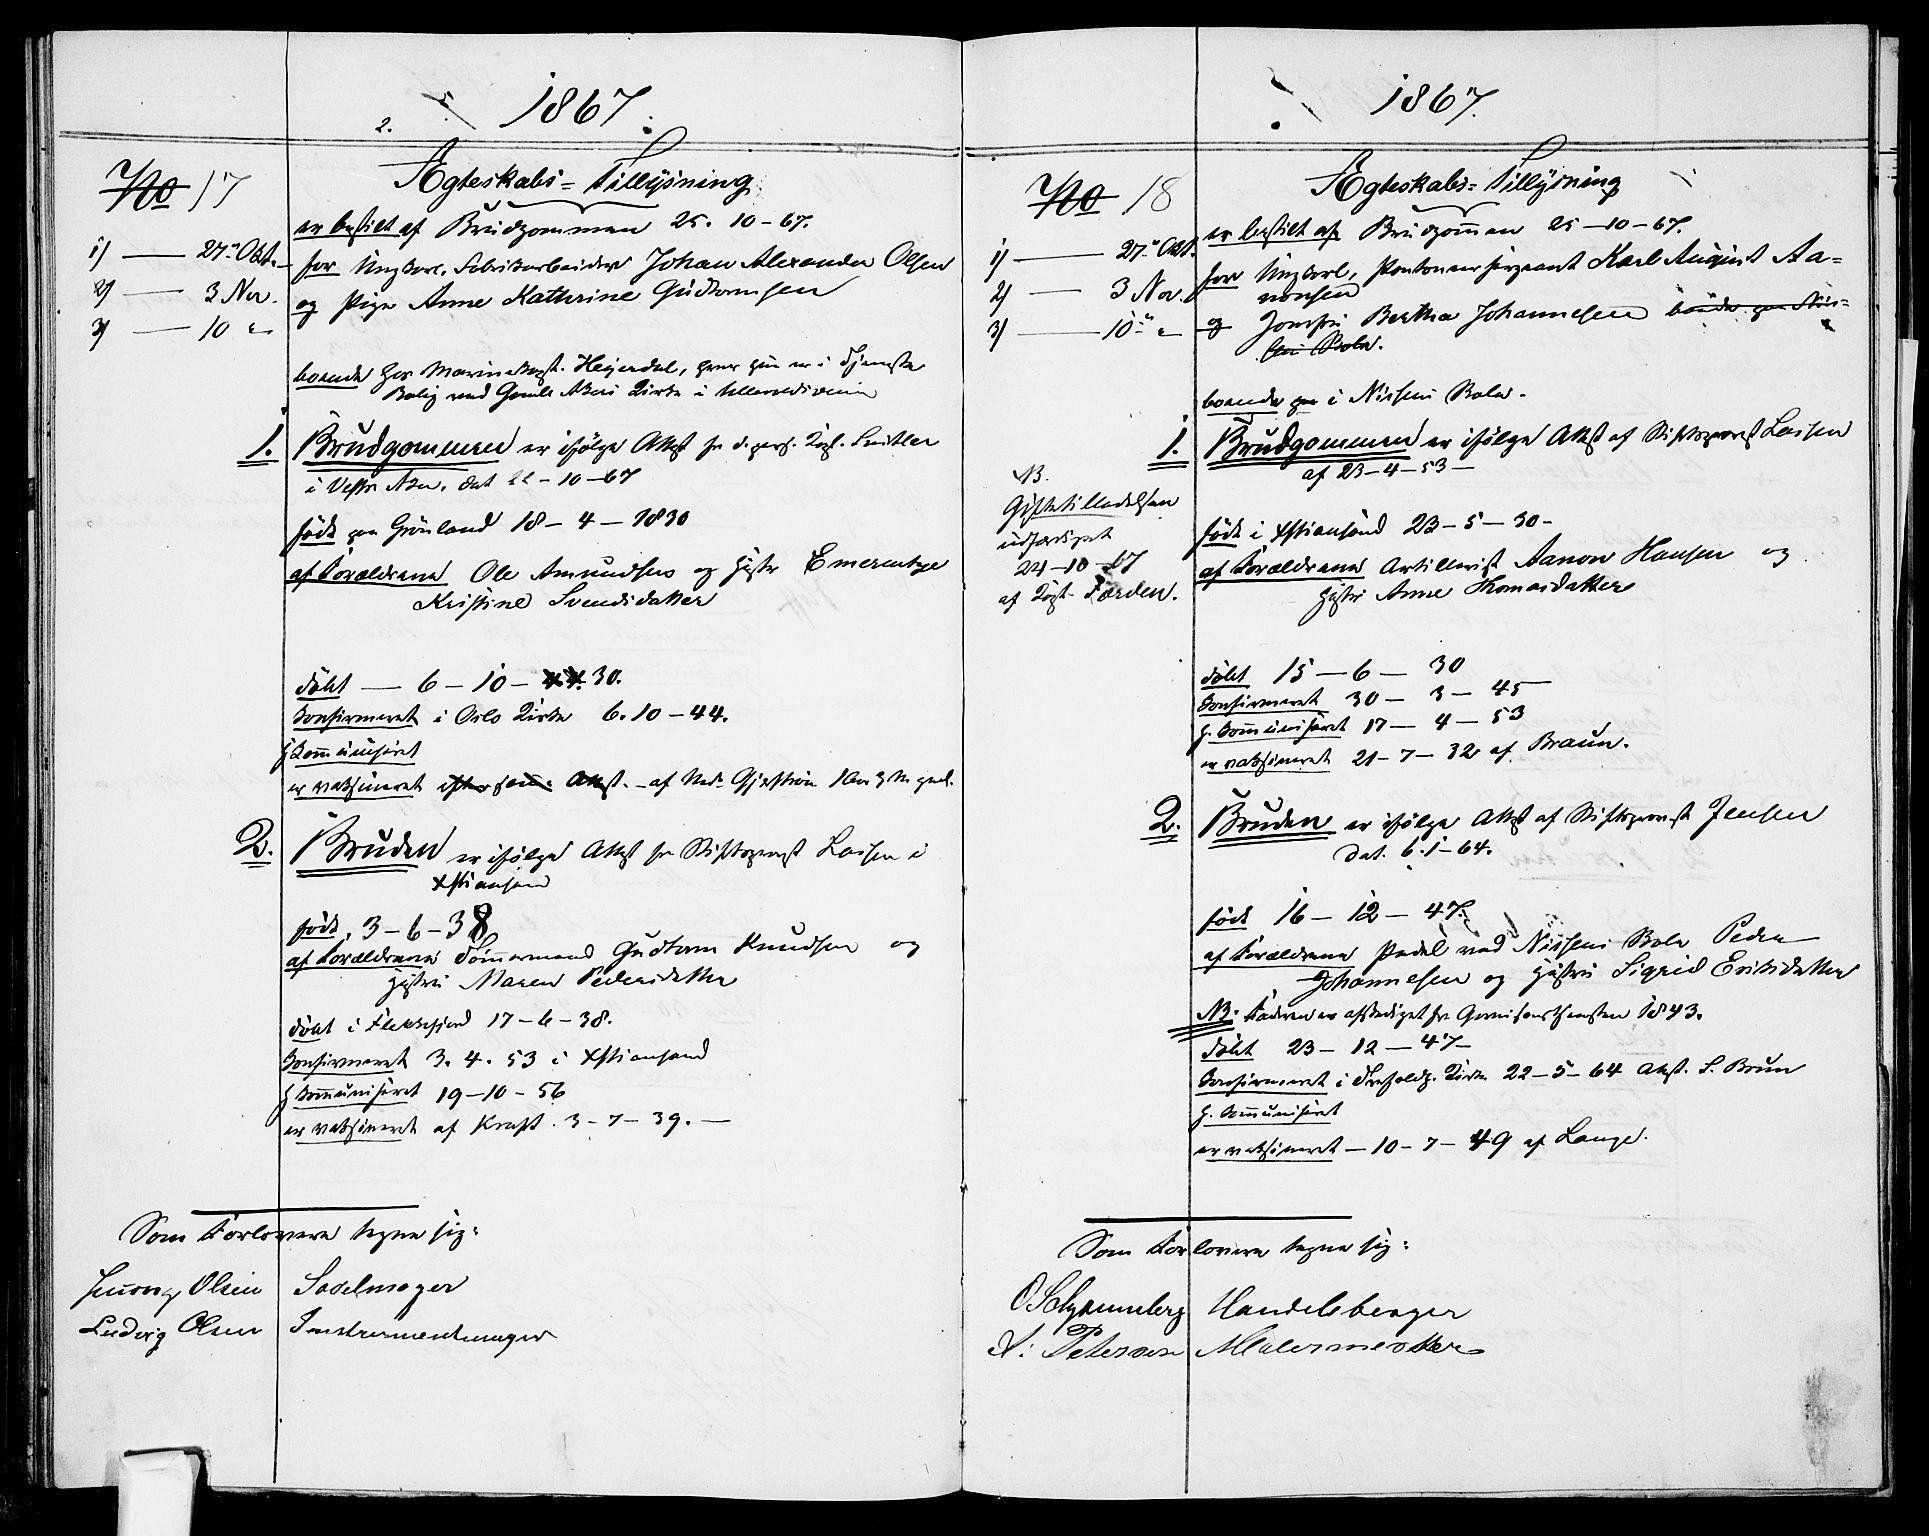 1867.
2.
No 17
Ægteskabs-Tillysning
er bestilt af Brudgommen 25. 10-67.
1) — 27de Okt.
for Ungkarl, Fabrikarbeider Johan Alexander Olsen
2) — 3 Nov.
og Pige Anne Kathrine Gudtormsen
3) — 10 "
boende hos Marinekapt. Heyerdal, hvor hun er i Tjeneste
Bolig ved Gamle Akers Kirke i Ullevoldsveien
1. Brudgommen er ifølge Attest fr. d. pers. Kapl.
i Vestre Aker, dat 22-10-67
født paa Grønland 18-4-1830
af Forældrene Ole Amundsen og Hustr Emerentze
Kristine Svendsdatter
døbt — 6-10-44. 30.
konfirmeret i Oslo Kirke 6.10-44.
h kommuniseret
er vaksineret Attest. af
2. Bruden er ifølge Attest fr Stiftsprovst Lassen i
Xstiansand
født, 3-6-38
af Forældrene Tømmermand Gudtorm Knudsen og
Hustru Maren Pedersdatter
døbt i Flekkefjord 17-6-38.
konfirmeret 3. 4. 53 i Xstiansand
h kommuniseret 19-10-56
er vaksineret af Kraft. 3-7-39. —
Som Forlovere tegne sig:
Olsen Sadelmager
Ludvig Olsen Instrumentmager
1867.
No 18
Ægteskabs-Tillysning
er bestilt af Brudgommen 25-10-67.
1) — 27de Okt.
for Ungkarl, Pontoneersergeant Karl August Aa-
2) — 3 Nov.
nonsen
3) — 10de "
og Jomfru Bertha Johannesen boende paa Nis-
sens Skole.
boende paa i Nissens Skole.
1. Brudgommen er ifølge Attest af Stiftsprovst Lassen
af 23-4-53 —
NB.
Giftetilladelsen
udfærdiget
24-10-67
af Kapt. Færden.
født i Xstiansand 23-5-30-
af Forældrene Artillerist Aanon Hansen og
Hustru Anne Thomasdatter
døbt 15-6-30
konfirmeret 30-3-45
h. kommuniseret 17-4-53
er vaksineret 21-7-32 af Braun.
2. Bruden er ifølge Attest af Stiftsprovst Jensen
dat. 6.1-64.
født 16-12-47.
af Forældrene Pedel ved Nissens Skole Peder
Johannesen og Hustru Sigrid Eriksdatter
NB. Faderen er afskediget fra Garnisonstjenesten 1843.
døbt 23-12-47-
konfirmeret i Trefoldh. Kirke 22-5-64 Attst. S. Brun
h. kommuniseret
er vaksineret — 10-7-49 af Lange.
Som Forlovere tegne sig:
Handelsborger
Petersen Malermester